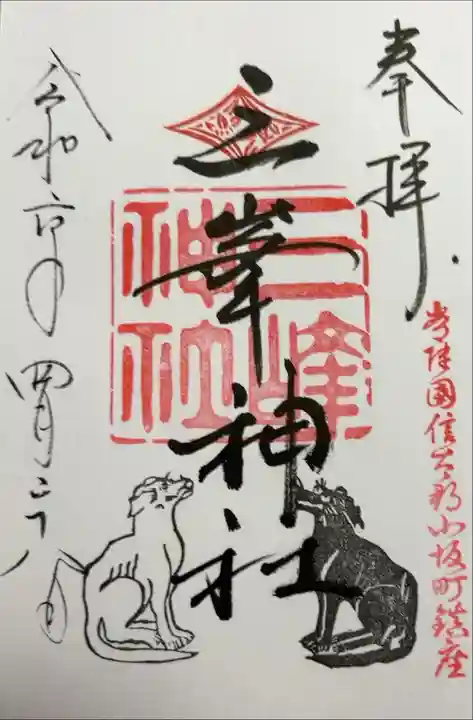 奉拝
常陸國信太郡小坂町鎮座
三峯神社
三峰
神社
令和六年四月二十八日